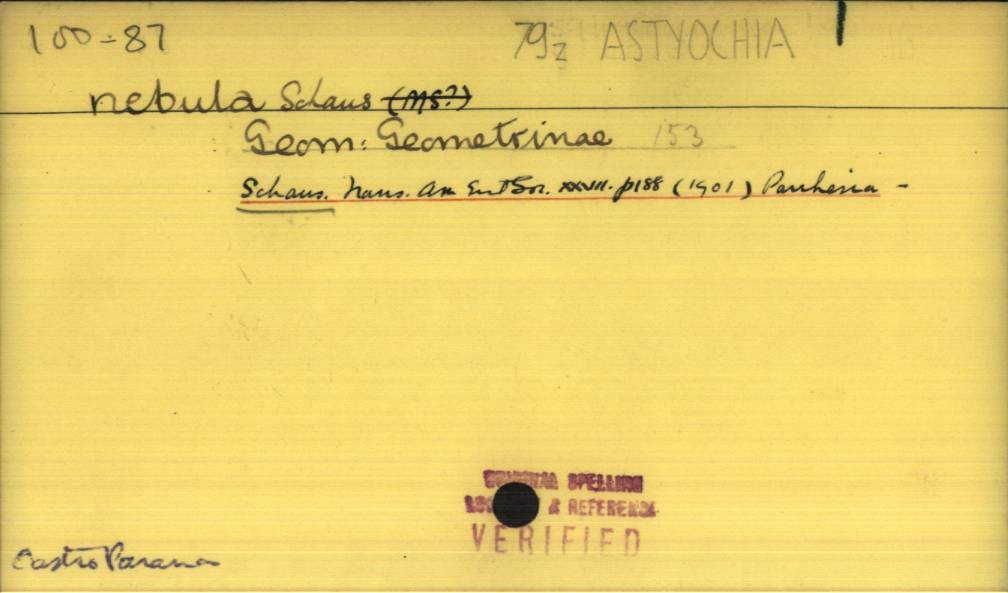 100-87 79z ASTYOCHIA
nebula Schaus (MS?)
Geom: Geometrinae 153
Schaus. Trans. Am Ent Soc. XXVII. p188 (1901)
ORIGINAL SPELLING
& REFERENCE
VERIFIED
Castro Parana